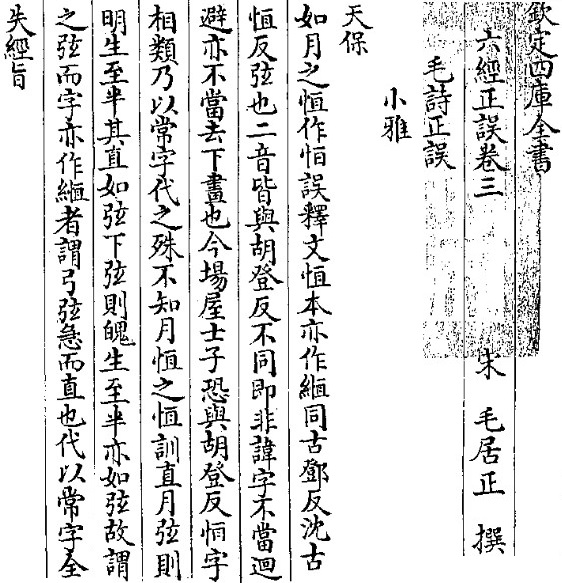 欽定四庫全書
六經正誤卷三　宋　毛居正　撰
毛詩正誤
小雅
天保
如月之恒作恒誤釋文恒本亦作緪同古鄧反沈古
恒反弦也二音皆與胡登反不同即非諱字不當迴
避亦不當去下畫也今場屋士子恐與胡登反恒字
相類乃以常字代之殊不知月恒之恒訓直月弦則
明生至半其直如弦下弦則魄生至半亦如弦故謂
之弦而字亦作緪者謂弓弦急而直也代以常字全
失經旨